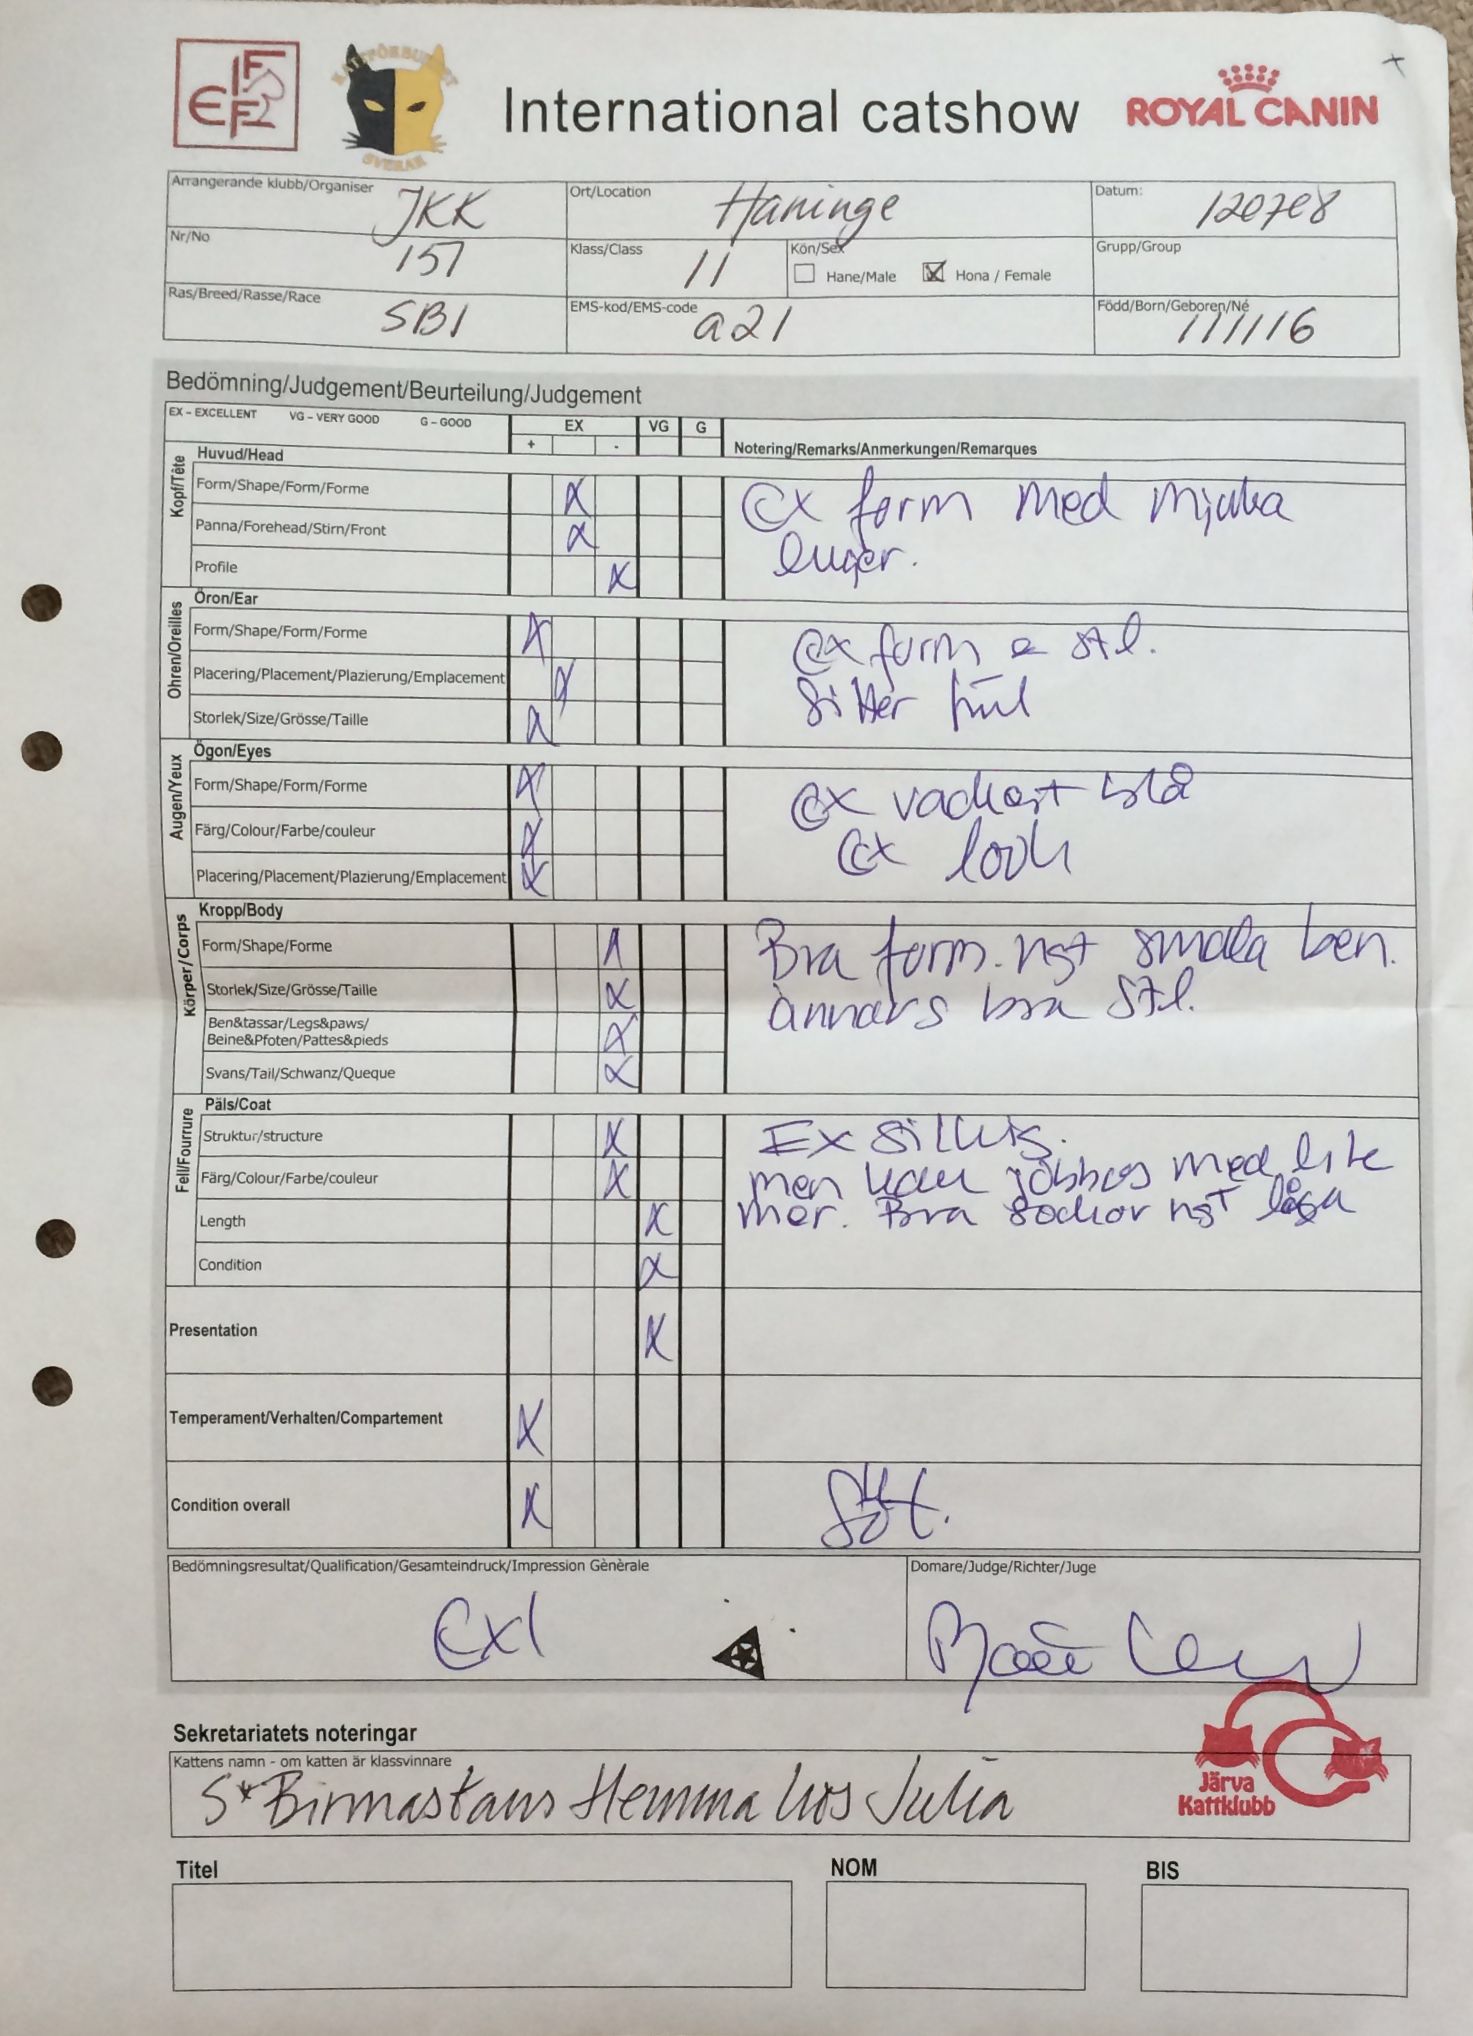 FIFE
KATTFÖRBUNDET
SVERAK
International catshow
ROYAL CANIN
Arrangerande klubb/Organiser JKK
Ort/Location Haninge
Datum: 120708
Nr/No 157
Klass/Class 11
Kön/Sex
Hane/Male
Hona / Female
Grupp/Group
Ras/Breed/Rasse/Race SBI
EMS-kod/EMS-code a21
Född/Born/Geboren/Né 111116
Bedömning/Judgement/Beurteilung/Judgement
EX – EXCELLENT VG – VERY GOOD G – GOOD
EX VG G
+ -
Notering/Remarks/Anmerkungen/Remarques
Kopf/Tête
Huvud/Head
Form/Shape/Form/Forme X
Panna/Forehead/Stirn/Front X
Profile X
Ex form med mjuka
Ohren/Oreilles
Öron/Ear
Form/Shape/Form/Forme X
Placering/Placement/Plazierung/Emplacement X
Storlek/Size/Grösse/Taille X
Ex form e stl.
Sitter
Augen/Yeux
Ögon/Eyes
Form/Shape/Form/Forme X
Färg/Colour/Farbe/couleur X
Placering/Placement/Plazierung/Emplacement X
Ex vackert blå
Ex look
Körper/Corps
Kropp/Body
Form/Shape/Forme X
Storlek/Size/Grösse/Taille X
Ben&tassar/Legs&paws/
Beine&Pfoten/Pattes&pieds X
Svans/Tail/Schwanz/Queque X
Bra form. ngt smala ben.
annars bra stl.
Fell/Fourrure
Päls/Coat
Struktur/structure X
Färg/Colour/Farbe/couleur X
Length X
Condition X
Ex silkig.
men kan jobbas med lite
mer. Bra sockor ngt låga
Presentation X
Temperament/Verhalten/Compartement X
Condition overall X
Söt.
Bedömningsresultat/Qualification/Gesamteindruck/Impression Gènèrale
Ex1
Domare/Judge/Richter/Juge
Sekretariatets noteringar
Kattens namn - om katten är klassvinnare
S*Birmastans Hemma hos Julia
Järva
Kattklubb
Titel
NOM
BIS